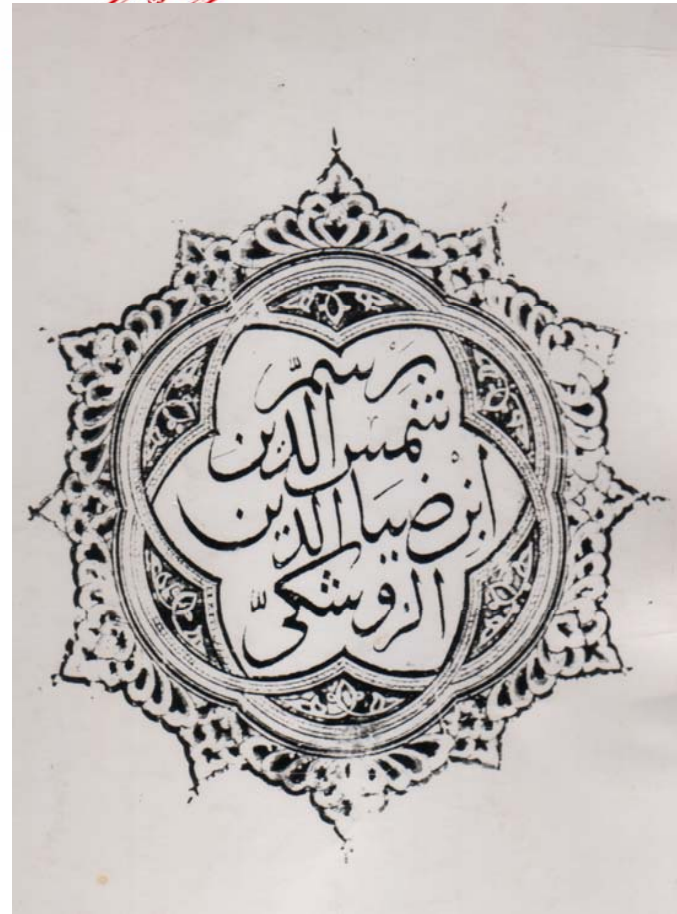 برسم
شمس الدين
ابن ضيا الدين
الروشكي